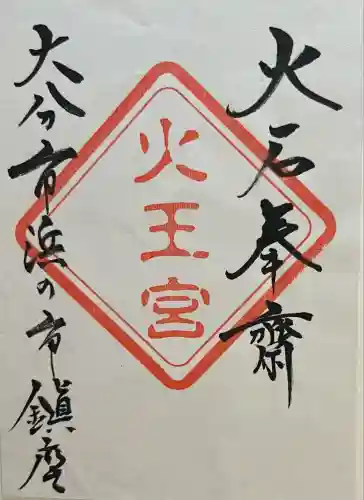 火石奉齋
火王宮
大分市浜の市鎮座